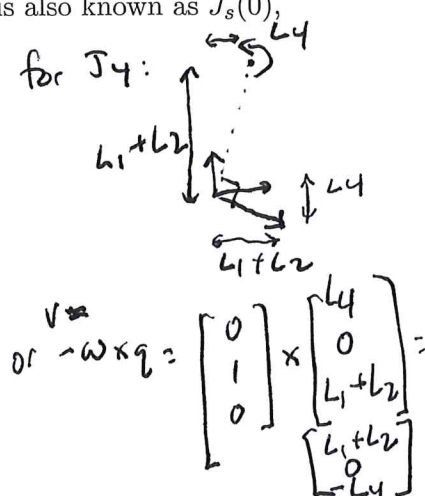 is also known as J_s(0),
for J4:
L4
L1+L2
L4
L1+L2
or -ω×q = [0 1 0] × [L4 0 L1+L2] =
[L1+L2 0 -L4]